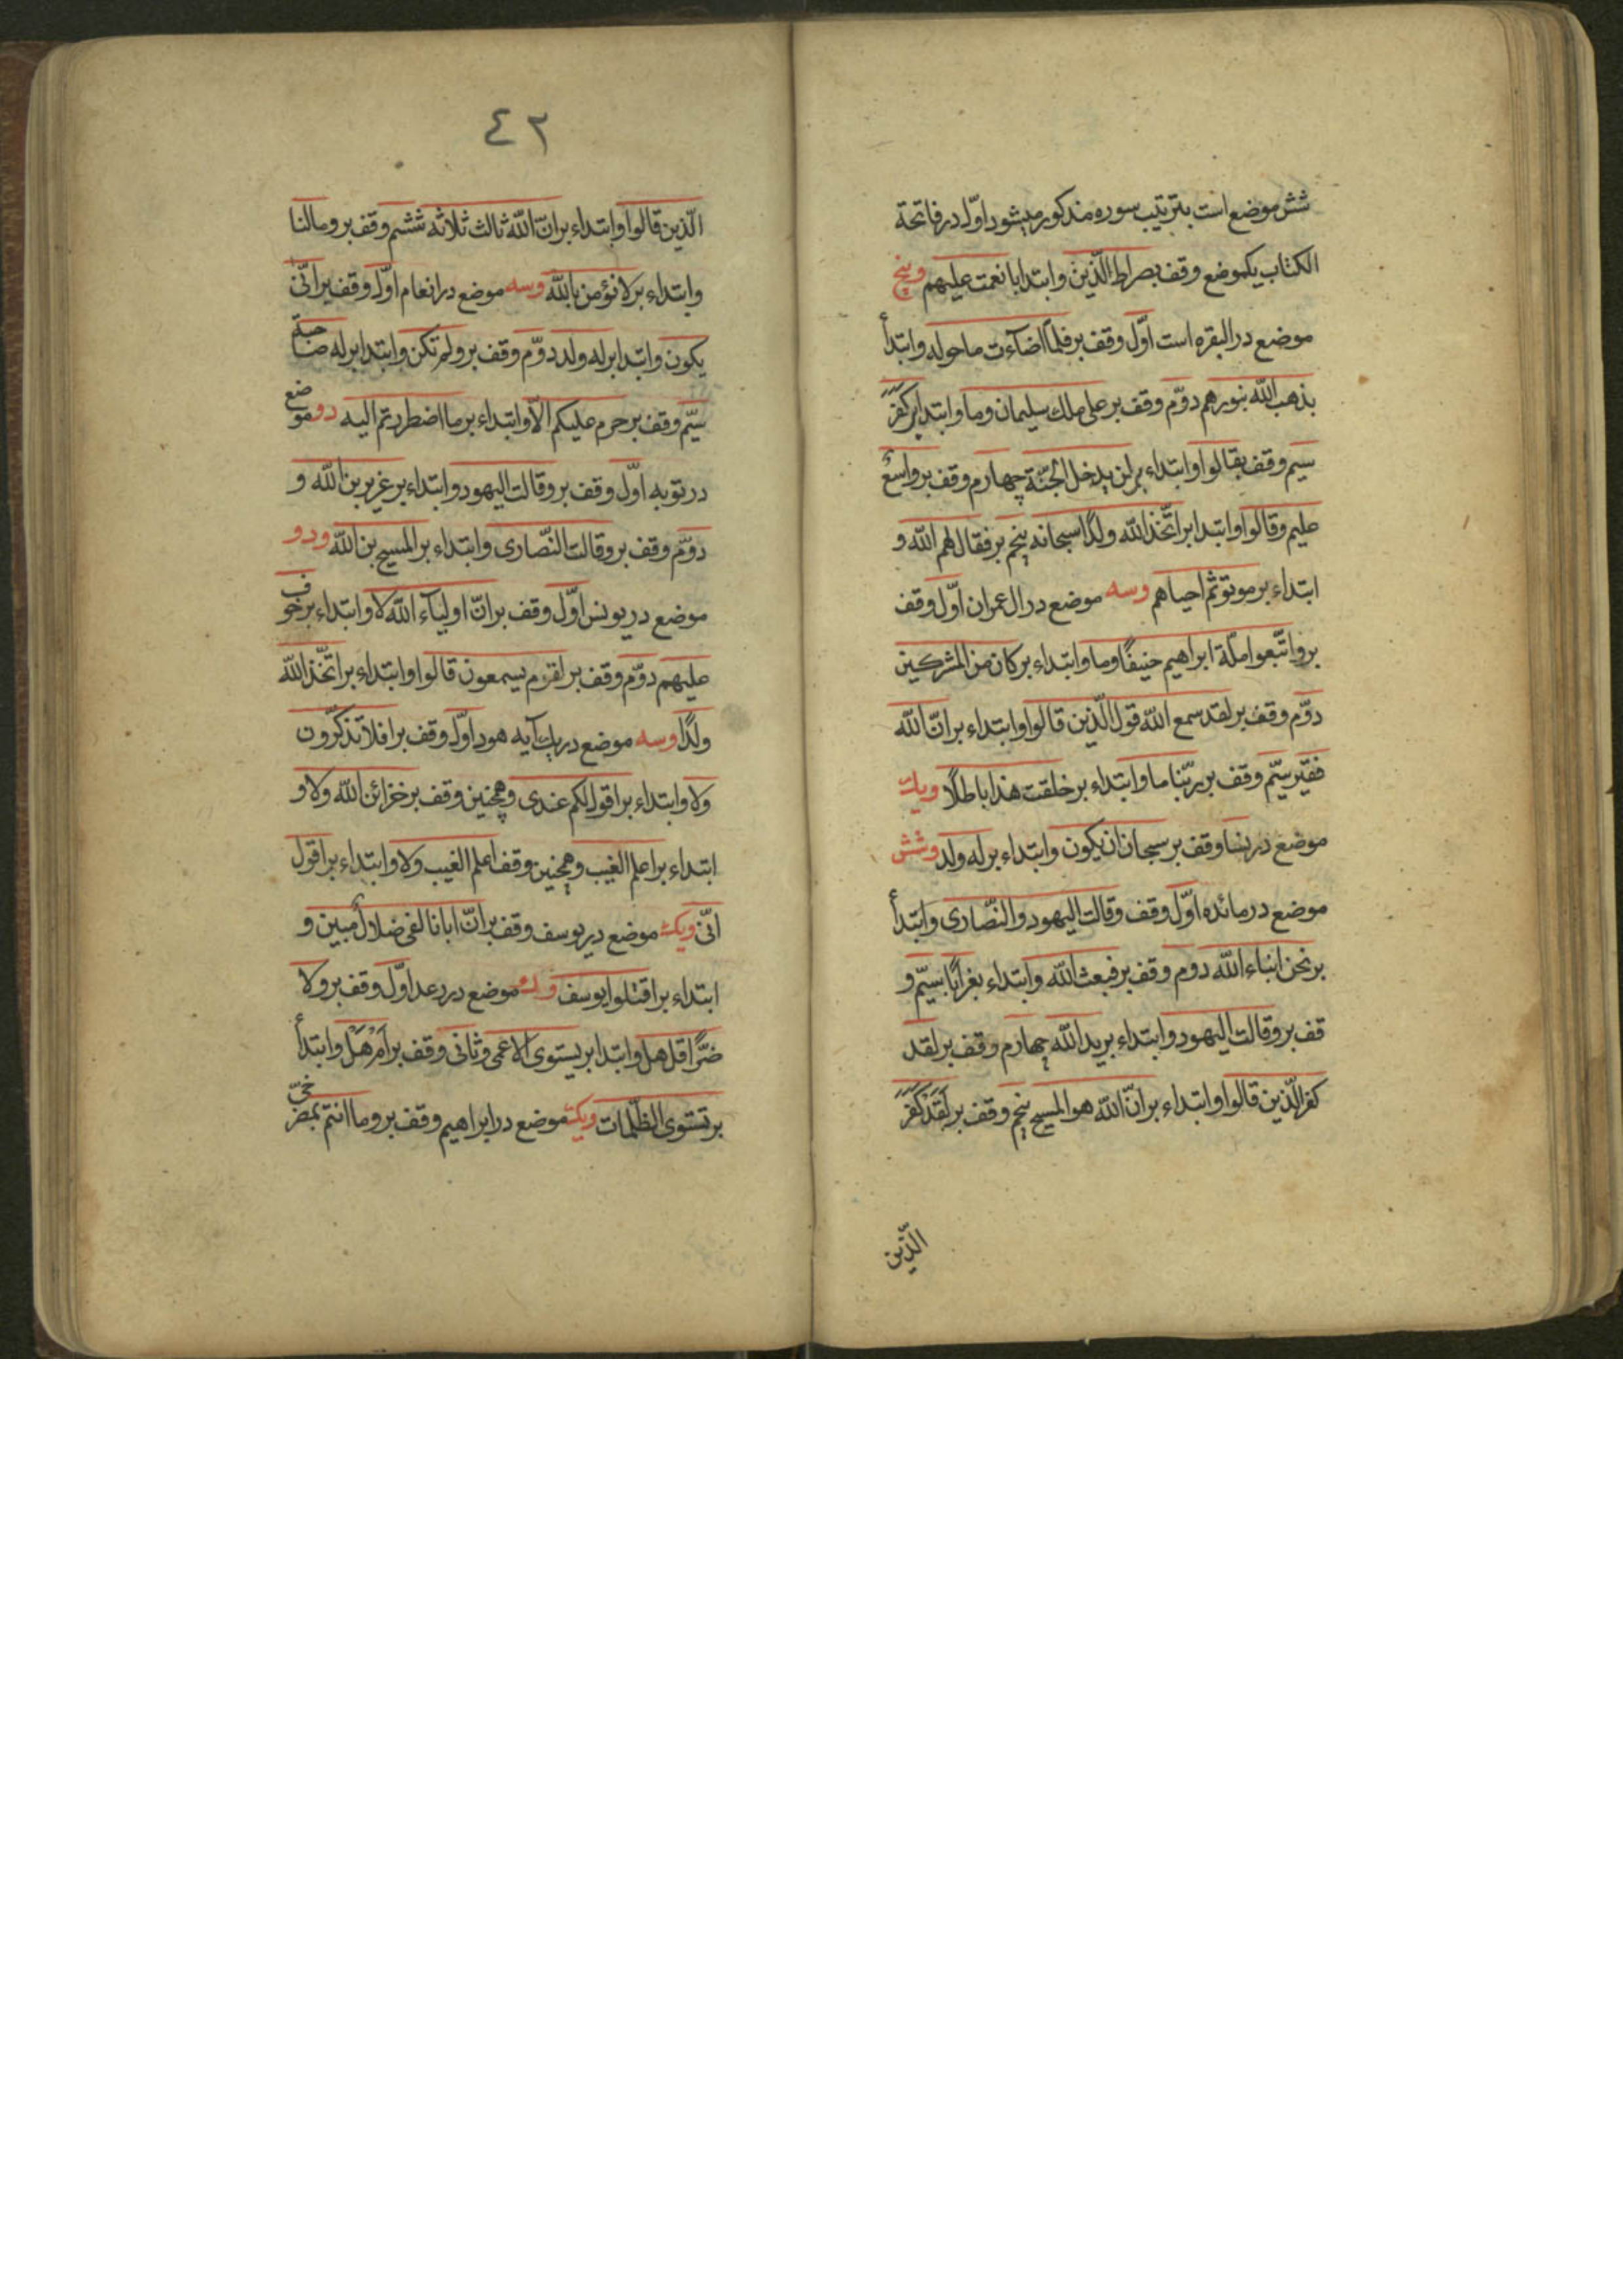 شش موضع است بترتیب سوره مذکور میشود اوّل در فاتحة
الکتاب یکموضع وقف بصراط الّذین وابتدا بانعمت علیهم وپنج
موضع در البقره است اوّل وقف بر فلمّا اضآءت ماحوله وابتدأ
بذهب الله بنورهم دوّم وقف بر علی ملك سلیمان وما وابتدا برکفر
سیم وقف بقالوا وابتداء بر لن یدخل الجنّة چهارم وقف بر واسع
علیم وقالوا وابتدا بر اتّخذ الله ولدًا سبحانه پنجم بر فقال لهم الله و
ابتداء بر موتوثم احیاهم وسه موضع در ال عمران اوّل وقف
بر واتّبعوا ملّة ابراهیم حنیفًا وما وابتداء بر کان من المشرکین
دوّم وقف بر لقد سمع الله قول الّذین قالوا وابتداء بر انّ الله
فقیر سیّم وقف بر ربّنا ما وابتداء بر خلقت هذا باطلًا ویك
موضع در نسا وقف بر سبحان ان یکون وابتداء بر له ولد وشش
موضع در مائده اوّل وقف وقالت الیهود والنّصاری وابتدأ
بر نحن ابناء الله دوم وقف بر فبعث الله وابتداء بغرابًا سیّم و
قف بر وقالت الیهود وابتداء بر ید الله چهارم وقف بر لقد
کفر الّذین قالوا وابتداء بر انّ الله هو المسیح پنجم وقف بر لَقَدْ کَفَرَ
الّذین
٤٢
الّذین قالوا وابتداء بر انّ الله ثالث ثلاثه ششم وقف بر ومالنا
وابتداء بر لا نؤمن بالله وسه موضع در انعام اوّل وقف بر انّی
یکون وابتدا بر له ولد دوّم وقف بر ولم تکن وابتدا بر له صاحبة
سیّم وقف بر حرم علیکم الاّ وابتداء بر ما اضطررتم الیه دو موضع
در توبه اوّل وقف بر وقالت الیهود وابتداء بر عزیر بن الله و
دوّم وقف بر وقالت النّصاری وابتداء بر المسیح بن الله ودو
موضع در یونس اوّل وقف بر انّ اولیآء الله لا وابتداء بر خوف
علیهم دوّم وقف بر لقوم یسمعون قالوا وابتداء بر اتّخذ الله
ولدًا وسه موضع در یك آیه هود اوّل وقف بر افلا تذکّرون
ولا وابتداء بر اقول لکم عندی وهمچنین وقف بر خزائن الله ولا و
ابتداء بر اعلم الغیب وهمچنین وقف اعلم الغیب ولا وابتداء بر اقول
انّی ویك موضع در یوسف وقف بر انّ ابانا لفی ضلال مبین و
ابتداء بر اقتلوا یوسف ودو موضع در رعد اوّل وقف بر ولا
ضرًّا قل هل وابتدا بر یستوی الاعمی وثانی وقف بر اَمْ هَلْ وابتدأ
بر تستوی الظّلمات ویك موضع در ابراهیم وقف بر وما انتم بمصرخیّ